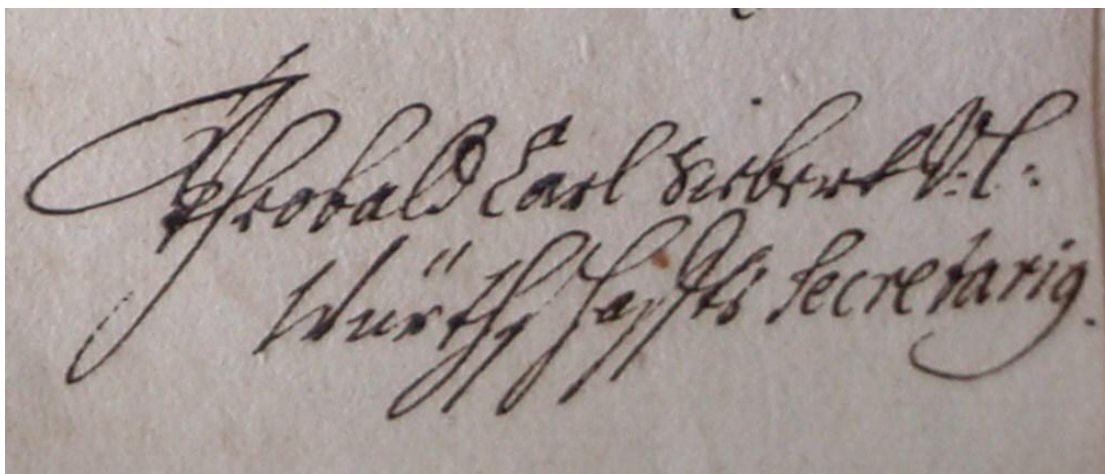 Theobald Carl Siebert
Würthschaffts Secretarig.